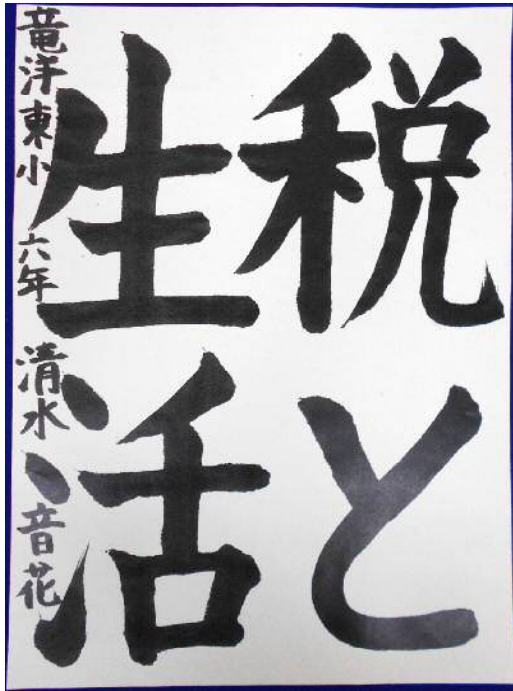 税と
生活
竜洋東小 六年 清水 音花